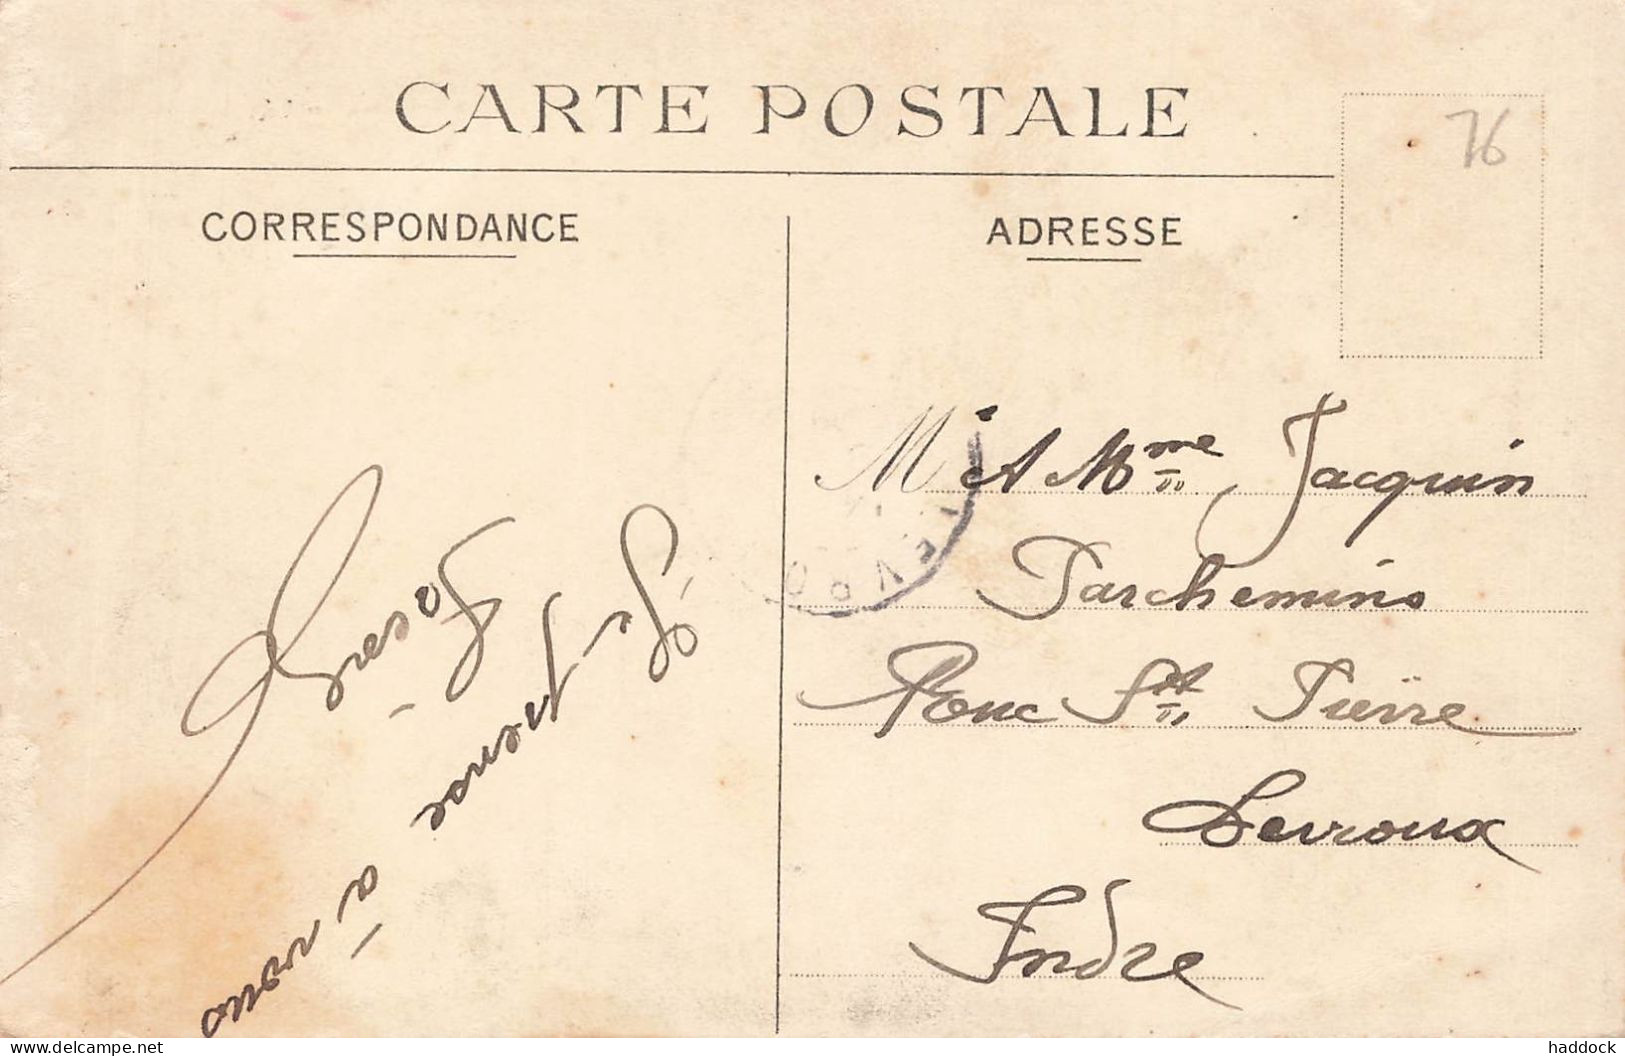 CARTE POSTALE
76
CORRESPONDANCE
ADRESSE
Je pense
à vous
Mr et Mme Jacquin
Parchemins
Rue St Pierre
Levroux
Indre
delcampe.net
haddock